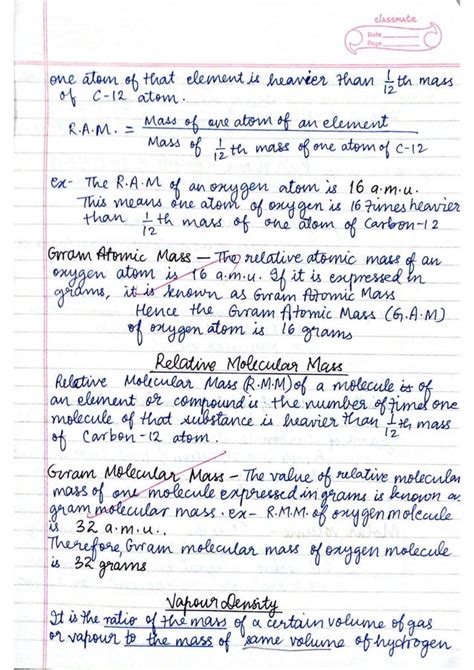 classmate
Date
Page
one atom of that element is heavier than 1/12 th mass
of C-12 atom.
R.A.M. = Mass of one atom of an element
Mass of 1/12 th mass of one atom of C-12
ex- The R.A.M of an oxygen atom is 16 a.m.u.
This means one atom of oxygen is 16 times heavier
than 1/12 th mass of one atom of Carbon-12
Gram Atomic Mass — The relative atomic mass of an
oxygen atom is 16 a.m.u. If it is expressed in
grams, it is known as Gram Atomic Mass
Hence the Gram Atomic Mass (G.A.M)
of oxygen atom is 16 grams
Relative Molecular Mass
Relative Molecular Mass (R.M.M) of a molecule is of
an element or compound is the number of times one
molecule of that substance is heavier than 1/12 th mass
of Carbon-12 atom.
Gram Molecular Mass - The value of relative molecular
mass of one molecule expressed in grams is known as
gram molecular mass. ex- R.M.M. of oxygen molecule
is 32 a.m.u..
Therefore, Gram molecular mass of oxygen molecule
is 32 grams
Vapour Density
It is the ratio of the mass of a certain volume of gas
or vapour to the mass of same volume of hydrogen